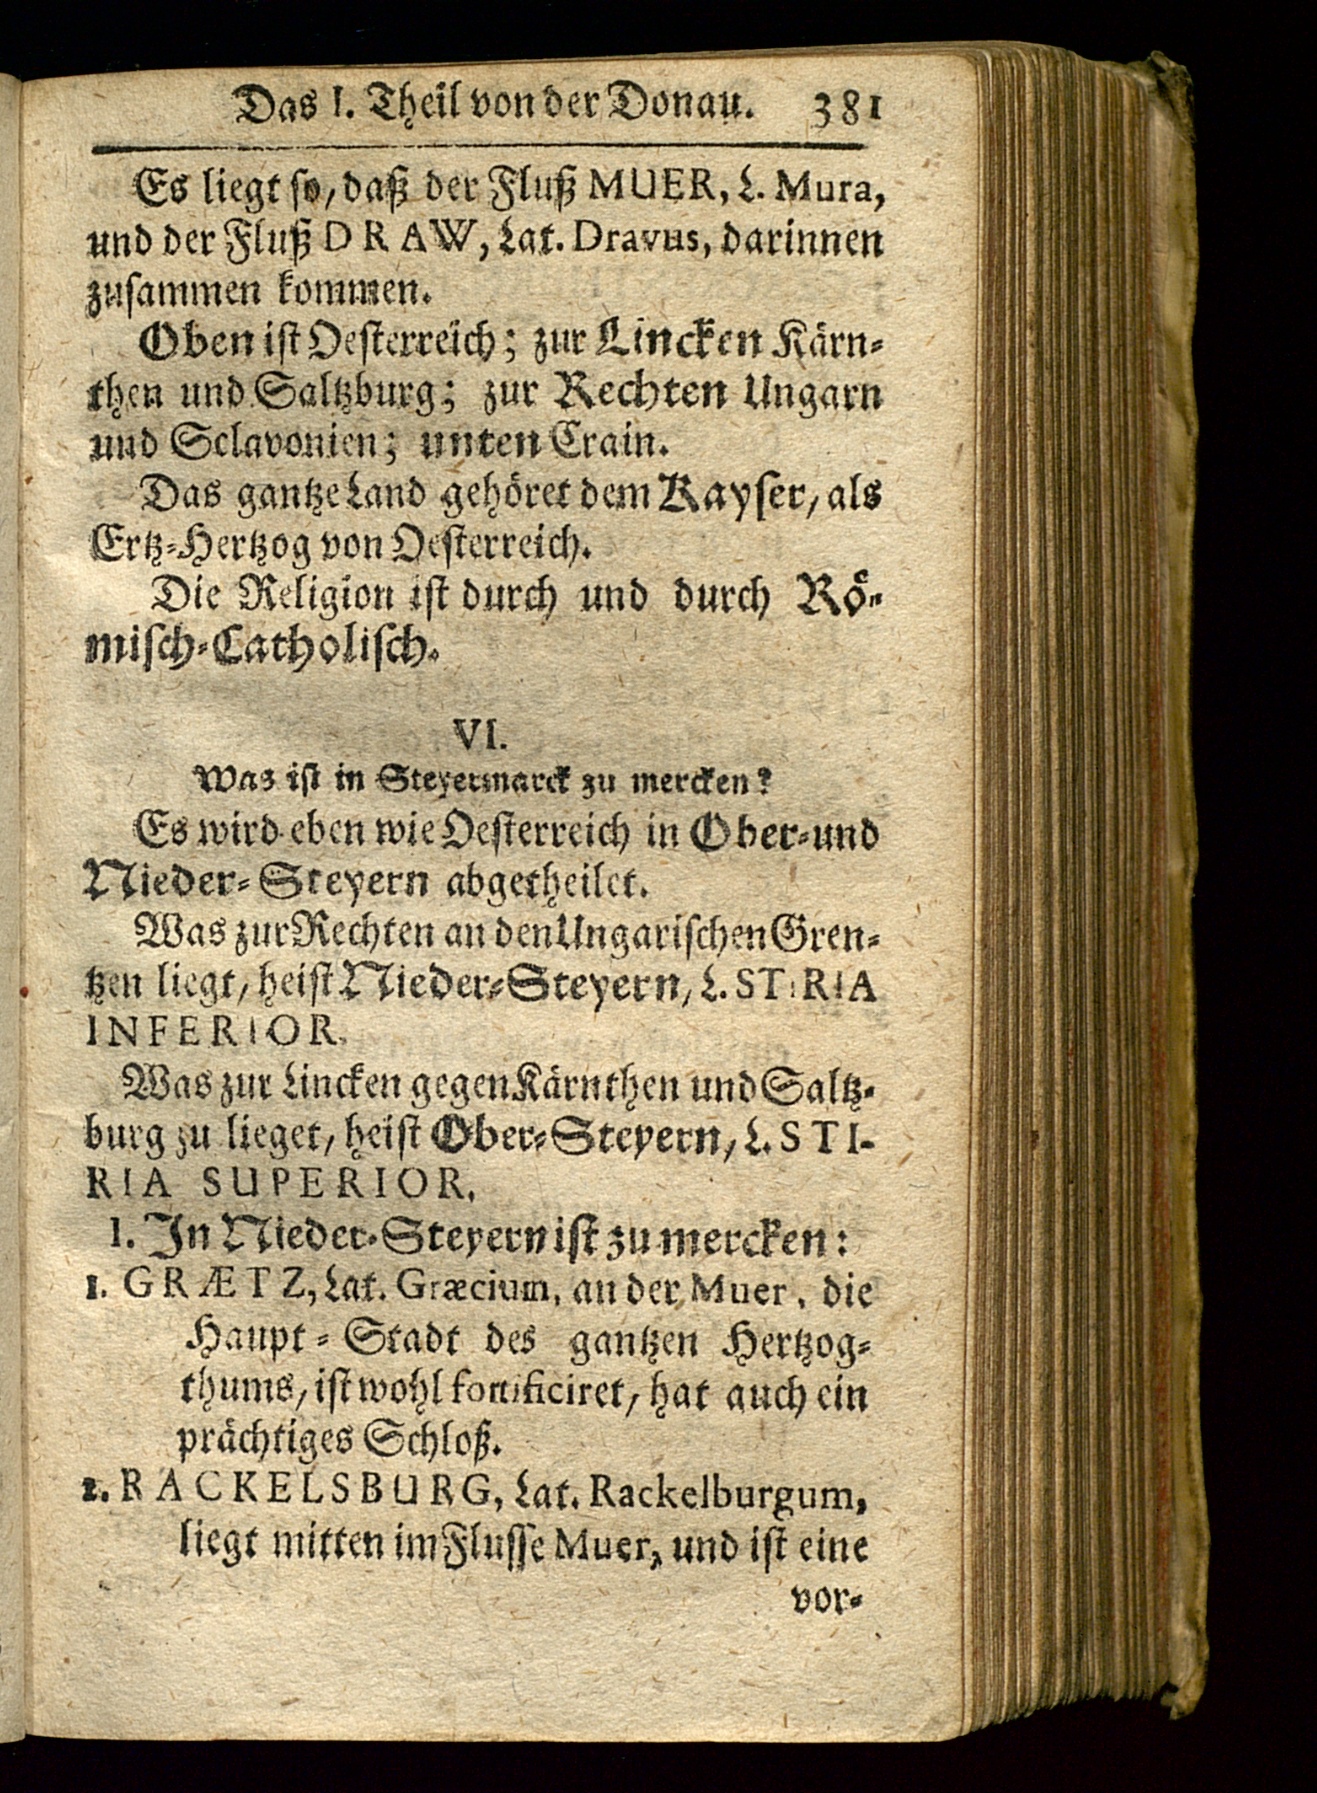 Das I. Theil von der Donau. 381
Es liegt so, daß der Fluß MUER, L. Mura,
und der Fluß DRAW, Lat. Dravus, darinnen
zusammen kommen.
Oben ist Oesterreich; zur Lincken Kärn-
then und Saltzburg; zur Rechten Ungarn
und Sclavonien; unten Crain.
Das gantze Land gehöret dem Kayser, als
Ertz-Hertzog von Oesterreich.
Die Religion ist durch und durch Rö-
misch-Catholisch.
VI.
Was ist in Steyermarck zu mercken?
Es wird eben wie Oesterreich in Ober-und
Nieder-Steyern abgetheilet.
Was zur Rechten an den Ungarischen Gren-
tzen liegt, heist Nieder-Steyern, L. STIRIA
INFERIOR.
Was zur Lincken gegen Kärnthen und Saltz-
burg zu lieget, heist Ober-Steyern, L. STI-
RIA SUPERIOR.
I. In Nieder-Steyern ist zu mercken:
1. GRÆTZ, Lat. Græcium, an der Muer, die
Haupt-Stadt des gantzen Hertzog-
thums, ist wohl fortificiret, hat auch ein
prächtiges Schloß.
2. RACKELSBURG, Lat. Rackelburgum,
liegt mitten im Flusse Muer, und ist eine
vor-